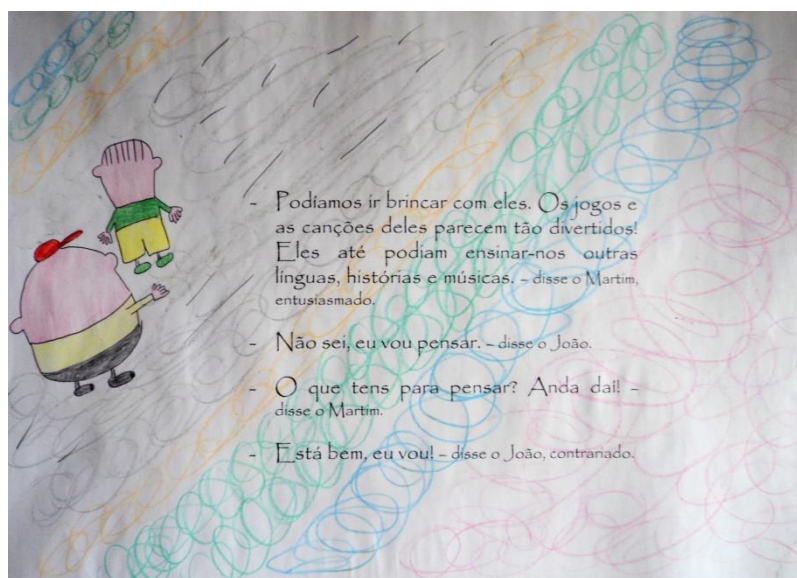 - Podíamos ir brincar com eles. Os jogos e
as canções deles parecem tão divertidos!
Eles até podiam ensinar-nos outras
línguas, histórias e músicas. – disse o Martim,
entusiasmado.
- Não sei, eu vou pensar. – disse o João.
- O que tens para pensar? Anda daí! –
disse o Martim.
- Está bem, eu vou! – disse o João, contrariado.